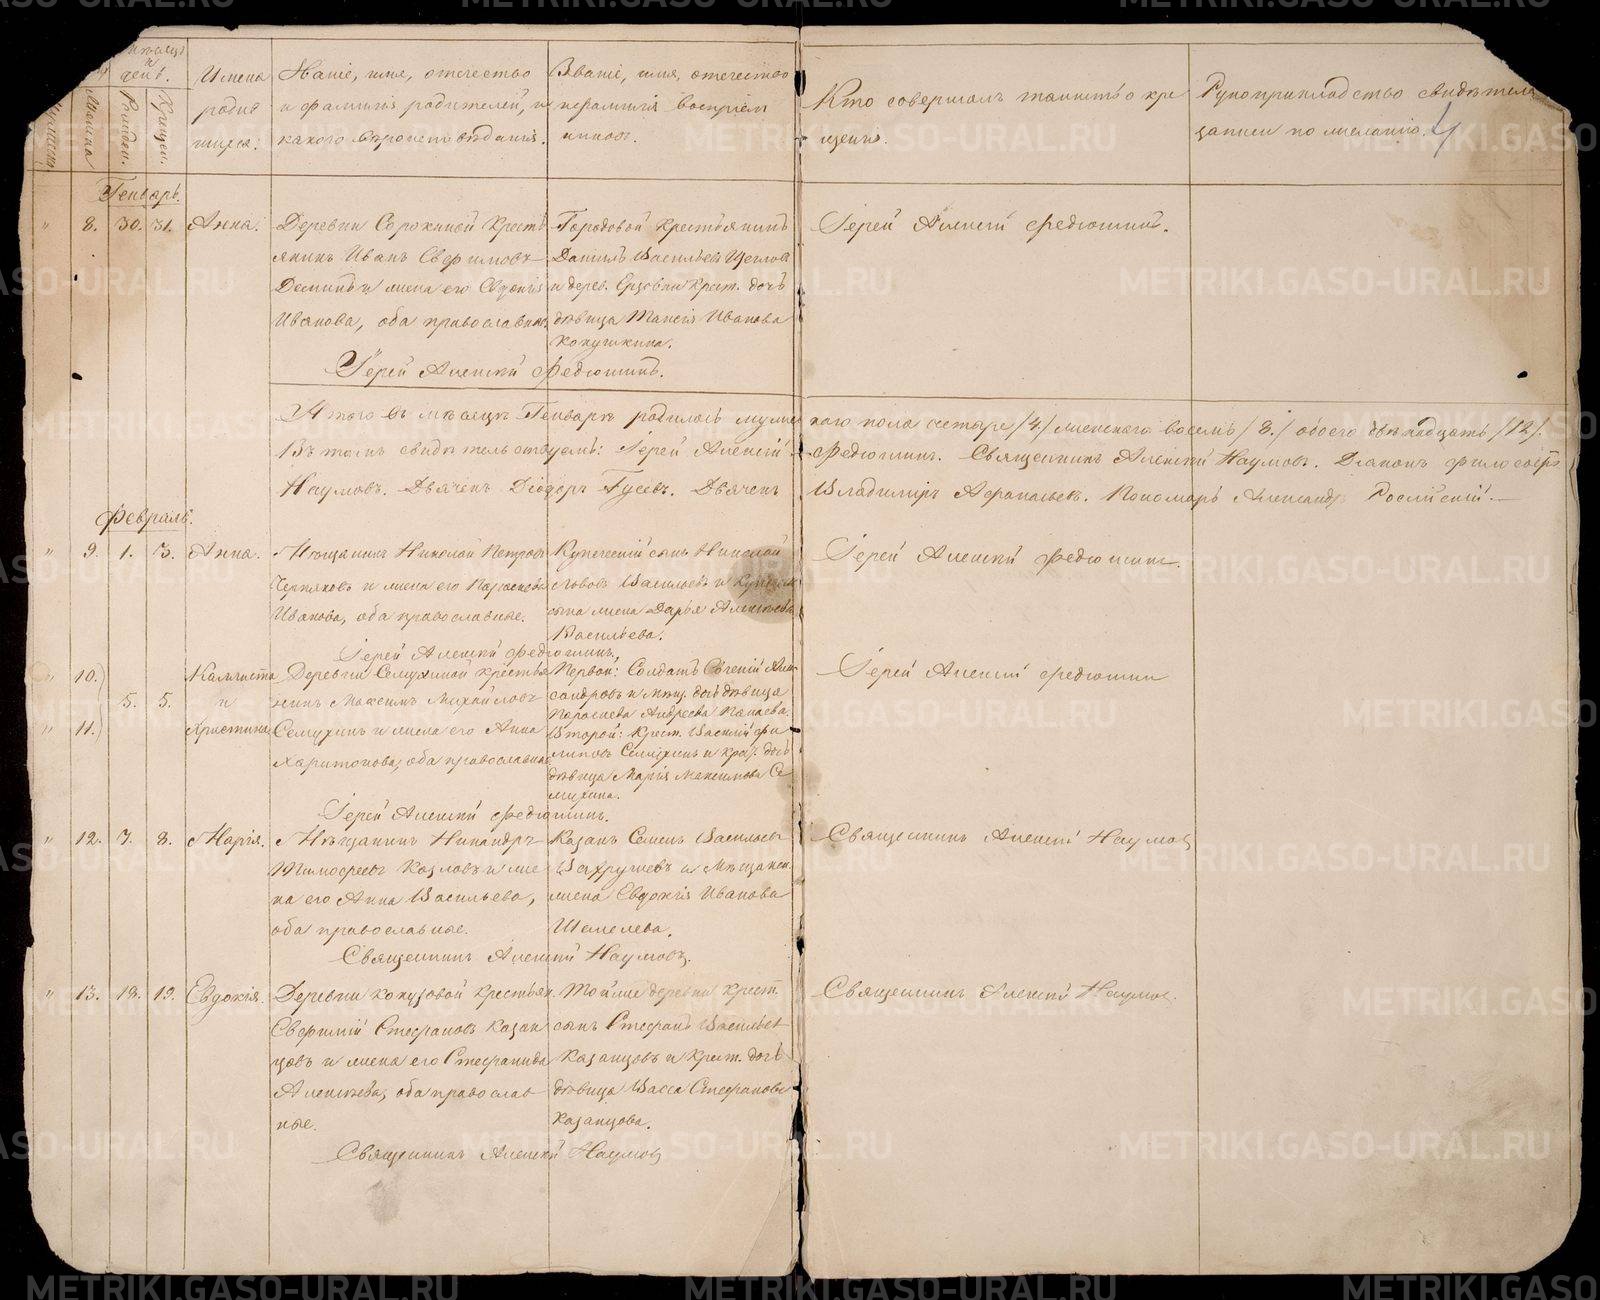 Мѣсяцъ
и
день.
Имена
родив
шихся.
Званіе, имя, отчество
и фамилія родителей, и
какого вѣроисповѣданія.
Званіе, имя, отчество
и фамилія воспріем
никовъ.
Кто совершалъ таинство кре
щенія.
Рукоприкладство свидѣтелей
записи по желанію.
4
Рожден.
Крещен.
Генварь.
8. 30. 31. Анна.
Деревни Сорокиной Крестъ
янинъ Иванъ Евфимовъ
Деминъ и жена его Евдокія
Иванова, оба православные.
Городовой крестьянинъ
Даніилъ Васильевъ Щегловъ
и дерев. Ерзовки крест. дочь
дѣвица Таисія Иванова
Кокушкина.
Іерей Алексій Федюшинъ.
Іерей Алексій Федюшинъ.
Итого въ мѣсяцѣ Генварѣ родилось мужес
каго пола четыре /4/ женскаго восемь /8./ обоего двѣнадцать /12/.
Въ томъ свидѣтельствуемъ: Іерей Алексій
Федюшинъ. Священникъ Алексій Наумовъ. Діаконъ
Наумовъ. Дьячекъ Діодоръ Гусевъ. Дьячекъ
Владиміръ Афанасьевъ. Пономарь Александръ
Февраль.
9. 1. 3. Анна.
Мѣщанинъ Николай Петровъ
Черняковъ и жена его Параскева
Иванова, оба православные.
Купеческій сынъ Николай
Львовъ Васильевъ и Купеч.
сына жена Дарья Алексѣева
Васильева.
Іерей Алексій Федюшинъ.
Іерей Алексій Федюшинъ.
10.) Каллиста
и 5. 5.
11.) Христина
Деревни Семухиной крестья
нинъ Максимъ Михайловъ
Семухинъ и жена его Анна
Харитонова, оба православные.
Первой: Солдатъ Евгеній Алек
сандровъ и мѣщ. дочь дѣвица
Параскева Андреева Панаева.
Второй: Крест. Василій Фи
липовъ Семухинъ и крест. дочь
дѣвица Марія Максимова Се
мухина.
Іерей Алексій Федюшинъ.
Іерей Алексій Федюшинъ
12. 7. 8. Марія.
Мѣщанинъ Никандръ
Тимофеевъ Козловъ и же
на его Анна Васильева,
оба православные.
Казакъ Семенъ Васильевъ
Вахрушевъ и Мѣщанск.
жена Евдокія Иванова
Шепелева.
Священникъ Алексій Наумовъ
Священникъ Алексій Наумовъ.
13. 18. 19. Евдокія.
Деревни Кокузовой крестьян.
Евфимій Стефановъ Казан
цовъ и жена его Стефанида
Алексѣева, оба православ
ные.
Той же деревни крест.
сынъ Стефанъ Васильевъ
Казанцовъ и крест. дочь
дѣвица Васса Стефанова
Казанцова.
Священникъ Алексій Наумовъ.
Священникъ Алексій Наумовъ
METRIKI.GASO-URAL.RU